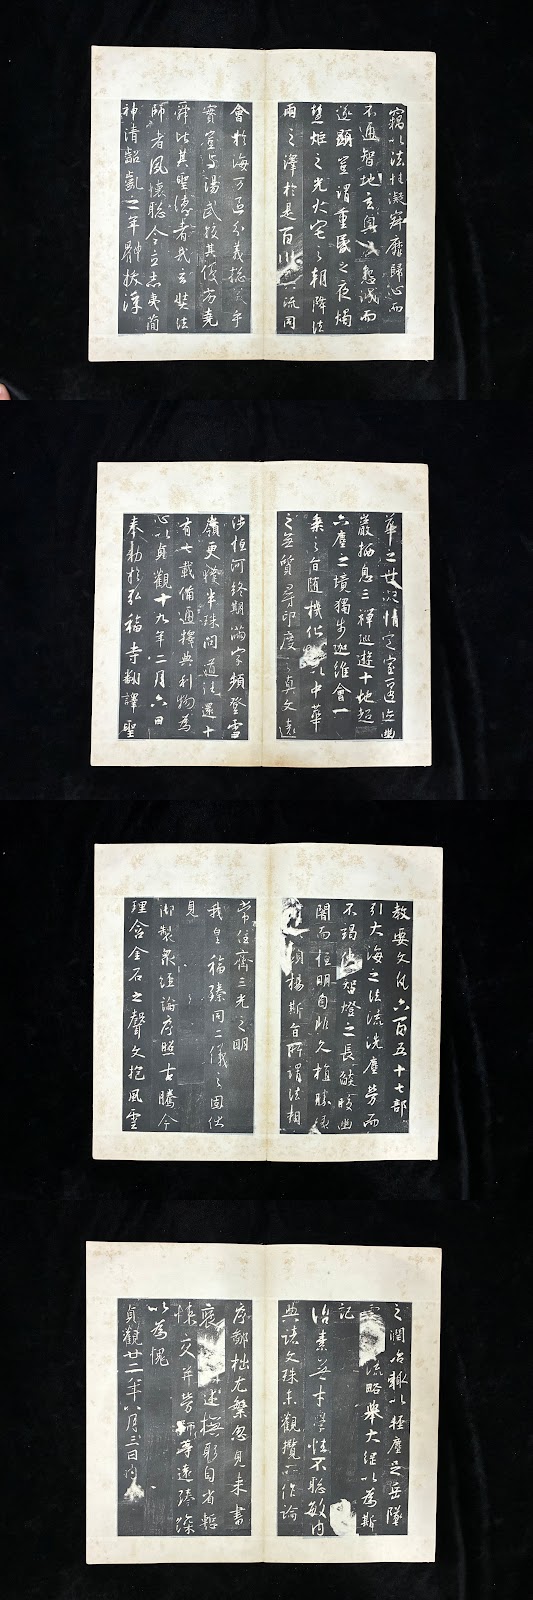 竊以法性凝寂靡歸心而
不通智地玄奧懇誠而
遂顯豈謂重昏之夜燭
慧炬之光火宅之朝降法
雨之澤於是百川流同
會於海万區分義總成乎
實豈與湯武校其優劣堯
舜比其聖德者哉玄奘法
師者夙懷聰令立志夷簡
神清齠齔之年體拔浮
華之世凝情定室匿迹幽
巖栖息三禪巡遊十地超
六塵之境獨步迦維會一
乘之旨隨機化以中華
之無質尋印度之真文遠
涉恒河終期滿字頻登雪
嶺更獲半珠問道往還十
有七載備通釋典利物為
心以貞觀十九年二月六日
奉勅於弘福寺翻譯聖
教要文凡六百五十七部
引大海之法流洗塵勞而
不竭智燈之長焰皎幽
闇而恒明自非久植勝緣
顯揚斯旨所謂法相
常住齊三光之明
我皇福臻同二儀之固伏
見
御製衆經論序照古騰今
理含金石之聲文抱風雲
之潤治輒以輕塵足岳墜
流略舉大綱以為斯
記
治素無才學性不聰敏內
典諸文殊未觀攬所作論
序鄙拙尤繁忽見來書
褒述撫躬自省慙
悚交并勞師等遠臻深
以為愧
貞觀廿二年八月三日內